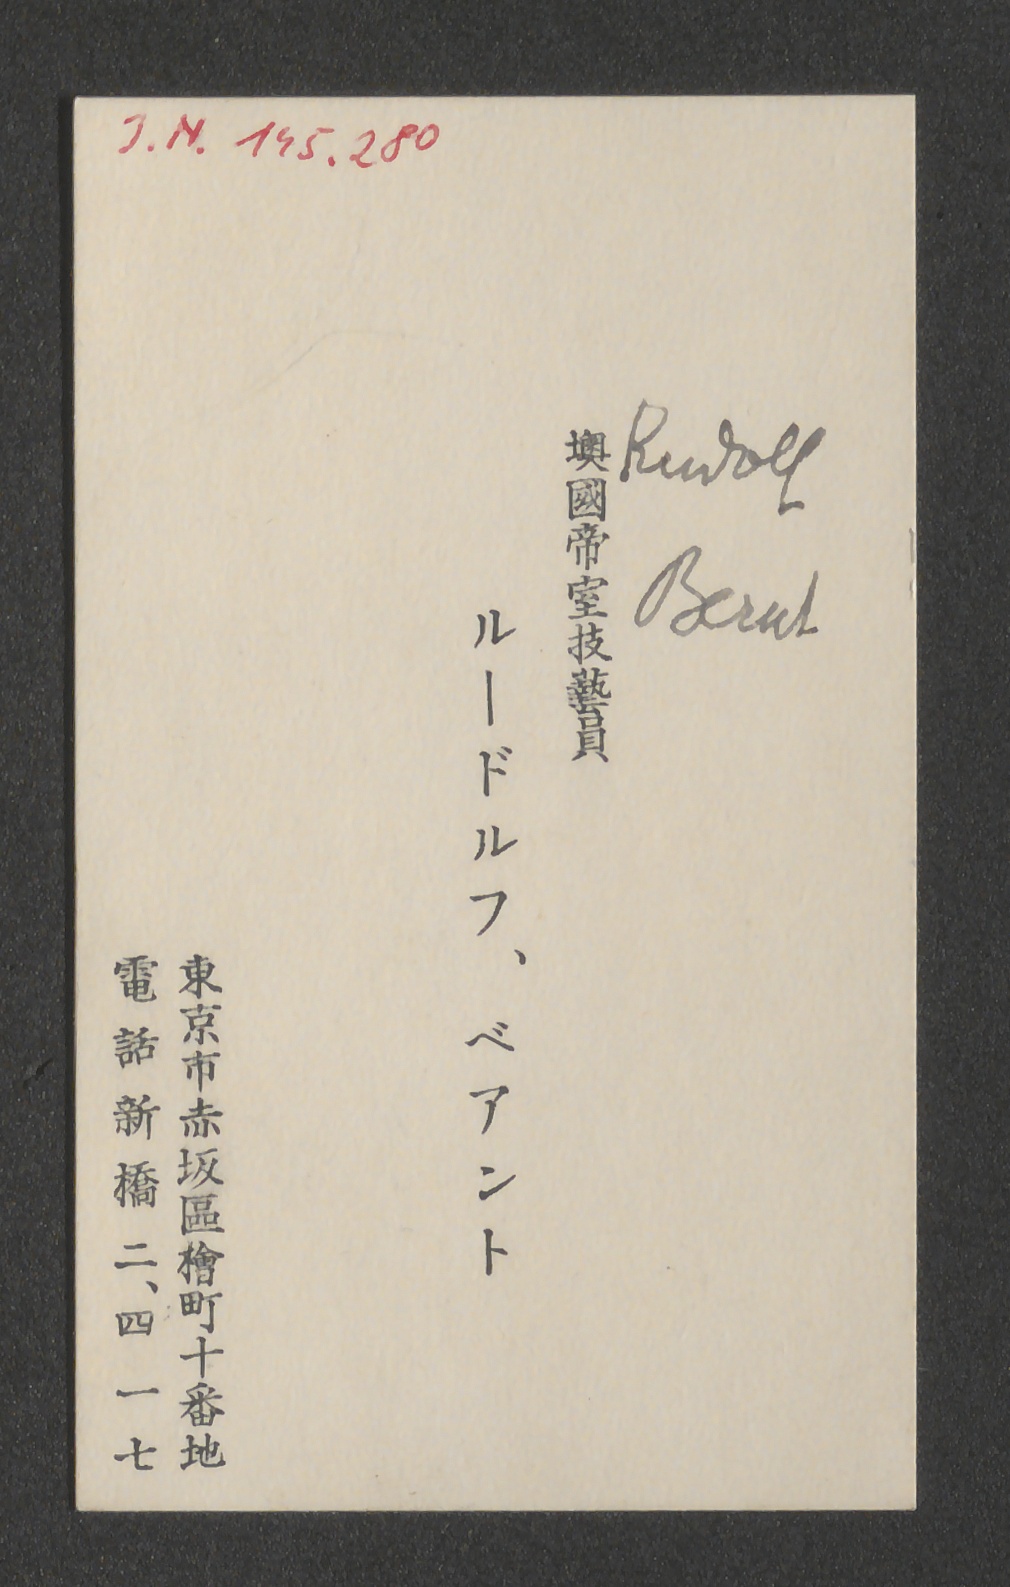 J.N. 145.280
Rudolf
Bernt
墺國帝室技藝員
ルードルフ、ベアント
東京市赤坂區檜町十番地
電話新橋二、四一七